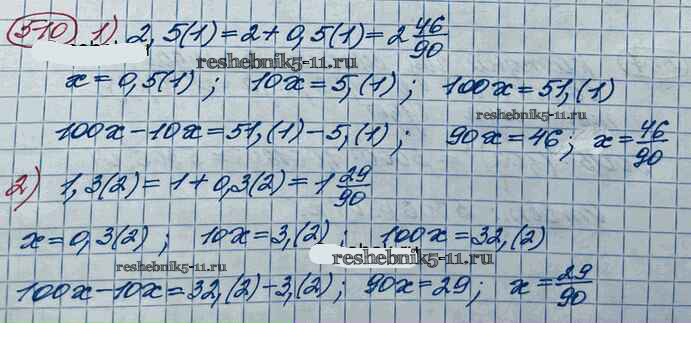 510 1) 2,5(1)=2+0,5(1)=2 46/90
reshebnik5-11.ru
x=0,5(1); 10x=5,(1); 100x=51,(1)
reshebnik5-11.ru
100x-10x=51,(1)-5,(1); 90x=46; x=46/90
2) 1,3(2)=1+0,3(2)=1 29/90
x=0,3(2); 10x=3,(2); 100x=32,(2)
reshebnik5-11.ru reshebnik5-11.ru
100x-10x=32,(2)-3,(2); 90x=29; x=29/90